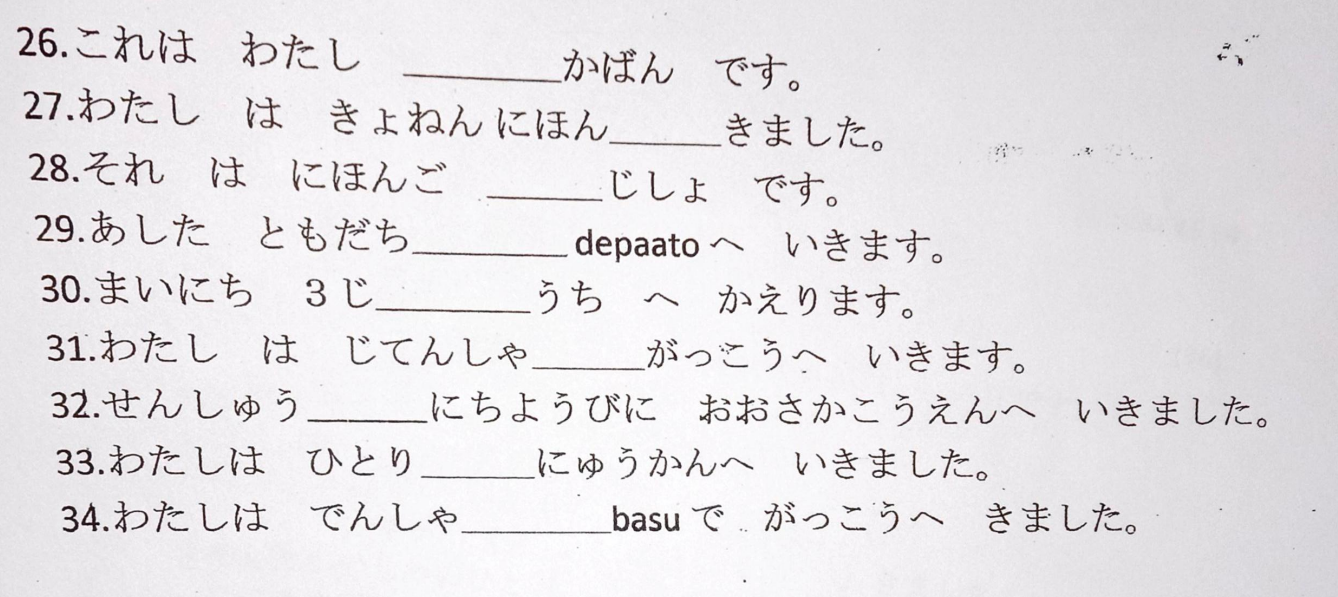 26.これは　わたし　________かばん　です。
27.わたし　は　きょねん にほん______きました。
28.それ　は　にほんご　______じしょ　です。
29.あした　ともだち________ depaato へ　いきます。
30.まいにち　３じ________うち　へ　かえります。
31.わたし　は　じてんしゃ______がっこうへ　いきます。
32.せんしゅう______にちようびに　おおさかこうえんへ　いきました。
33.わたしは　ひとり______にゅうかんへ　いきました。
34.わたしは　でんしゃ________basu で　がっこうへ　きました。